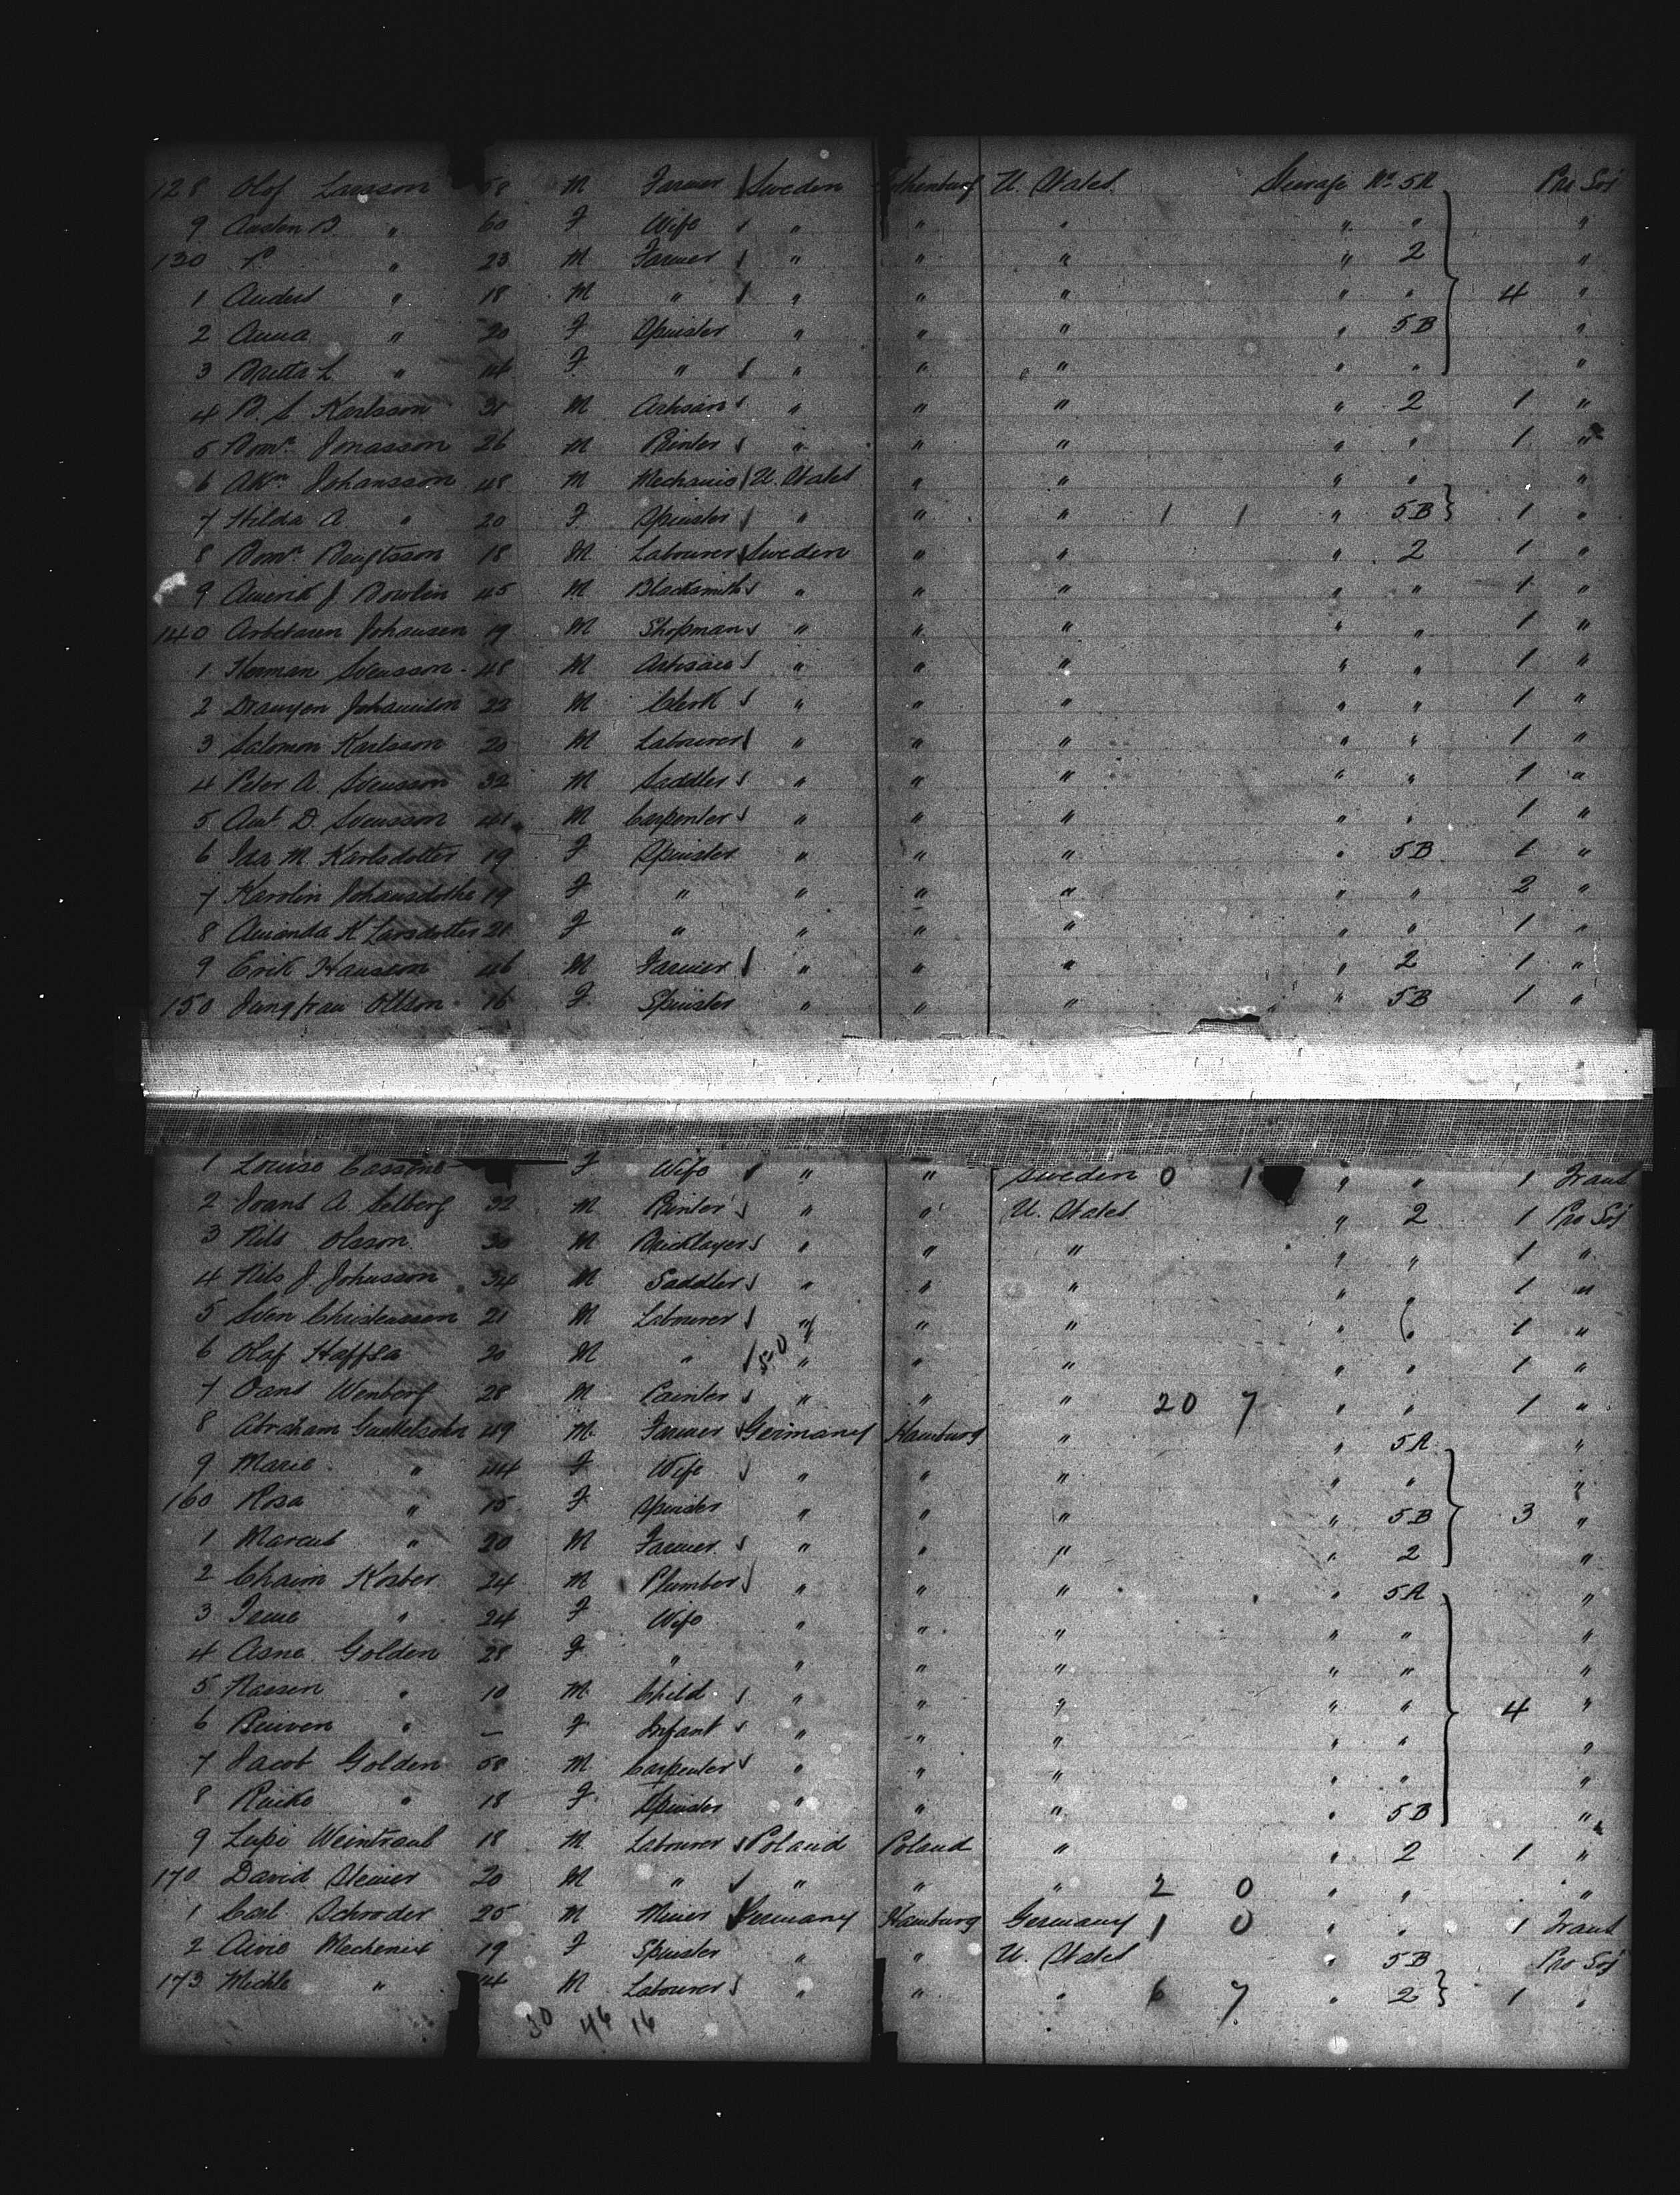 128 Olof Larsson 58 M Farmer Sweden Gothenburg U. States Steerage No 5A Pro Soj
9 " 60 F Wife " " " " " "
130 P. " 23 M Farmer " " " " 2 "
1 Anders " 18 M " " " " " " 4 "
2 Anna " 20 F Spinster " " " " 5B "
3 Britta L. " 14 F " " " " " " "
4 B. S. Karlsson 31 M Artisan " " " " 2 1 "
5 Jonasson 26 M Printer " " " " " 1 "
6 Johansson 48 M Mechanic U. States " " " " "
7 Hilda A " 20 F Spinster " " " 1 1 " 5B 1 "
8 Bengtsson 18 M Labourer Sweden " " " 2 1 "
9 J Bowlin 45 M Blacksmith " " " " " 1 "
140 Johansen 19 M Shopman " " " " " 1 "
1 Herman Svensson 48 M Artisan " " " " " 1 "
2 22 M Clerk " " " " " 1 "
3 Salomon Karlsson 20 M Labourer " " " " " 1 "
4 Peter A. Svensson 32 M Saddler " " " " " 1 "
5 Aut. D. Svensson 41 M Carpenter " " " " " 1 "
6 Ida M. Karlsdotter 19 F Spinster " " " " 5B 1 "
7 Karolin 19 F " " " " " " 2 "
8 Amanda K Larsdotter 21 F " " " " " " 1 "
9 Erik Hansson 46 M Farmer " " " " 2 1 "
150 Jungfrau Ollson 16 F Spinster " " " " 5B 1 "
1 Louise F Wife " " Sweden 0 1 " " 1 Trans
2 A. Selberg 32 M Printer " " U. States " 2 1 Pro Soj
3 Nils Olsson 30 M Bricklayer " " " " " 1 "
4 Nils J. Johnsson 34 M Saddler " " " " " 1 "
5 Sven Christensson 21 M Labourer " " " " " 1 "
6 Olaf Haffsa 20 M " " " " " " 1 "
7 Wenberg 28 M Painter " " " 20 7 " " 1 "
8 Abraham 49 M Farmer Germany Hamburg " " 5A "
9 Marie " 44 F Wife " " " " " "
160 Rosa " 15 F Spinster " " " " 5B 3 "
1 Marcus " 20 M Farmer " " " " 2 "
2 Chaim Kosber 24 M Plumber " " " " 5A "
3 " 24 F Wife " " " " " "
4 Asne Golden 28 F " " " " " " "
5 Nassen " 10 M Child " " " " " 4 "
6 Reuven " — F Infant " " " " " "
7 Jacob Golden 58 M Carpenter " " " " " "
8 " 18 F Spinster " " " " 5B "
9 Weintraub 18 M Labourer Poland Poland " " 2 1 "
170 David 20 M " " " " 2 0 " " "
1 Carl Schroder 25 M Miner Germany Hamburg Germany 1 0 " " 1 Trans
2 19 F Spinster " " U. States " 5B Pro Soj
173 " 14 M Labourer " " " 6 7 " 2 1 "
30 46 16